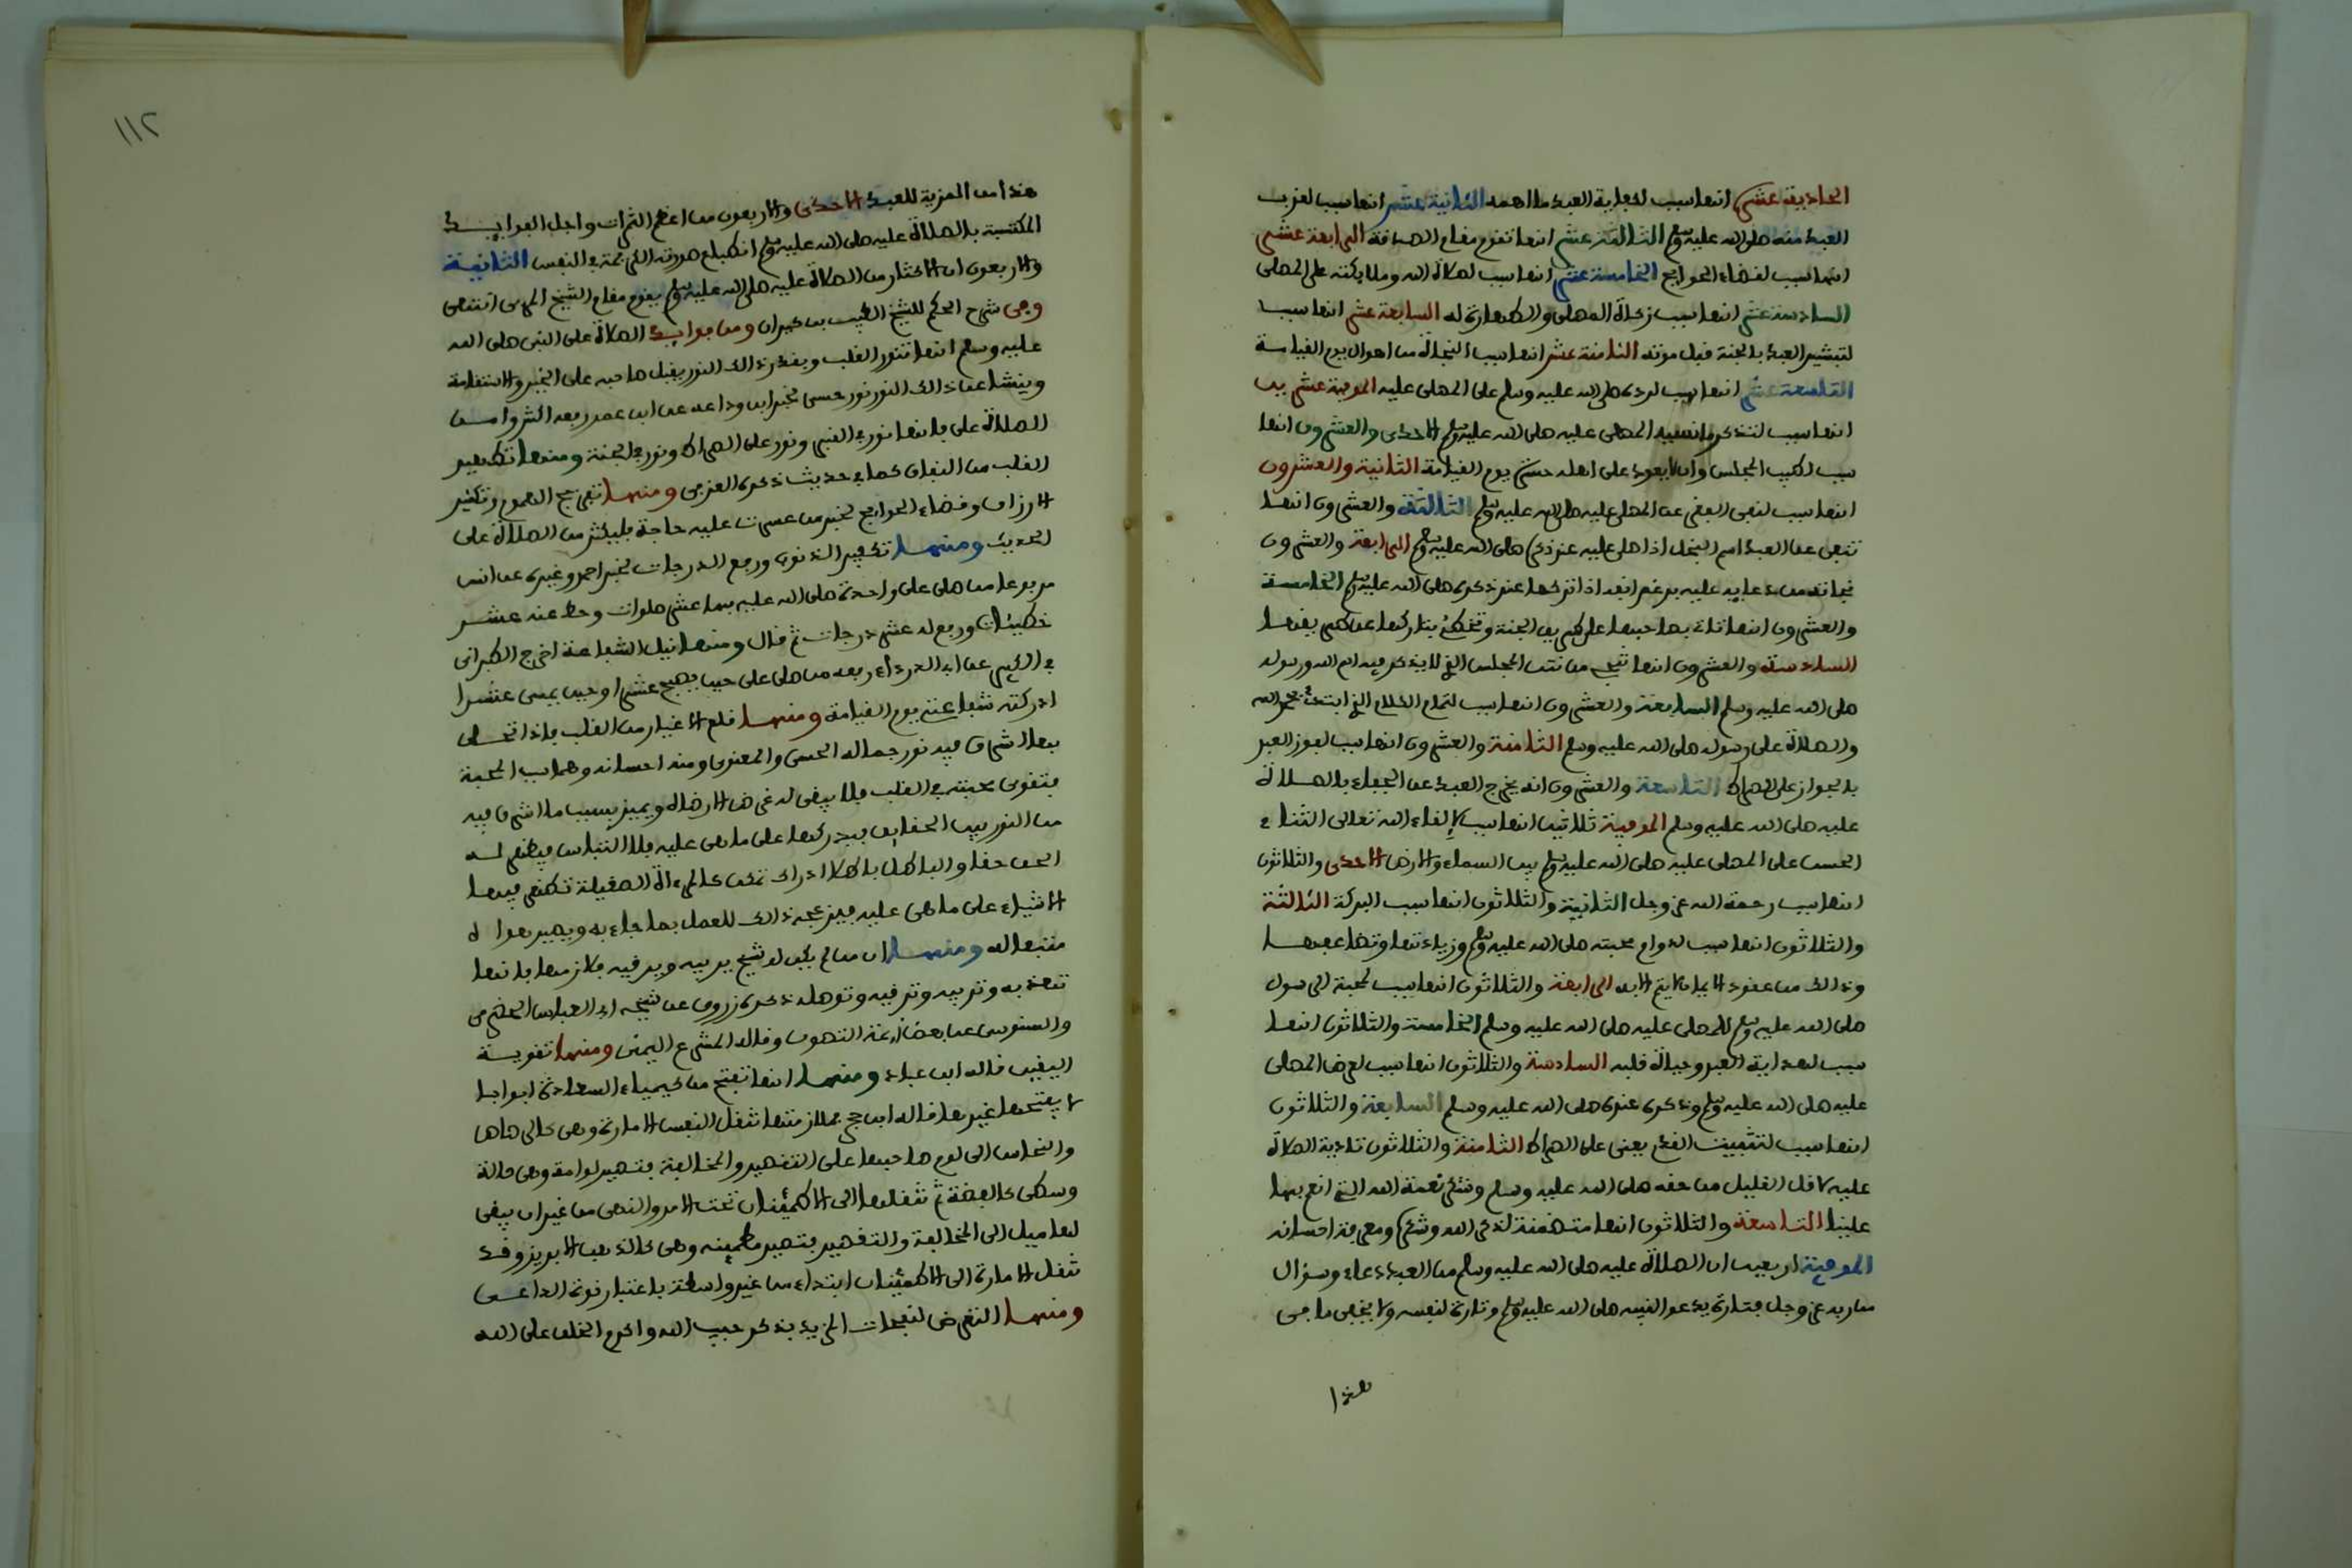 الحادية عشر انها سبب لكفاية العبد ما اهمه الثانية عشر انها سبب لقرب
العبد منه صلى الله عليه وسلم الثالثة عشر انها تقوم مقام الصدقة الرابعة عشر
انها سبب لقضاء الحوايج الخامسة عشر انها سبب لصلاة الله وملايكته على المصلى
السادسة عشر انها سبب زكاة المصلى والطهارة له السابعة عشر انها سبب
لتبشير العبد بالجنة قبل موته الثامنة عشر انها سبب النجاة من اهوال يوم القيامة
التاسعة عشر انها سبب لرده صلى الله عليه وسلم على المصلى عليه الموفية عشرين
انها سبب لتذكر ما نسيه المصلى عليه صلى الله عليه وسلم الاحدى والعشرون انها
سبب لطيب المجلس وان لا يعود على اهله حسرة يوم القيامة الثانية والعشرون
انها سبب لنفى الفقر عن المصلى عليه صلى الله عليه وسلم الثالثة والعشرون انها
تنفى عن العبد اسم البخل اذا صلى عليه عند ذكره صلى الله عليه وسلم الرابعة والعشرون
نجاته من دعايه عليه برغم انفه اذا تركها عند ذكره صلى الله عليه وسلم الخامسة
والعشرون انها تاتى بصاحبها على طريق الجنة وتخطئ بتاركها عن طريقها
السادسة والعشرون انها تنجى من نتن المجلس الذى لا يذكر فيه اسم الله ورسوله
صلى الله عليه وسلم السابعة والعشرون انها سبب لتمام الكلام الذى ابتدئ بحمد الله
والصلاة على رسوله صلى الله عليه وسلم الثامنة والعشرون انها سبب لفوز العبد
بالجواز على الصراط التاسعة والعشرون انه يخرج العبد عن الجفاء بالصلاة
عليه صلى الله عليه وسلم الموفية ثلاثين انها سبب لالقاء الله تعالى الثناء
الحسن على المصلى عليه صلى الله عليه وسلم بين السماء والارض الاحدى والثلاثون
انها سبب رحمة الله عز وجل الثانية والثلاثون انها سبب البركة الثالثة
والثلاثون انها سبب لدوام محبته صلى الله عليه وسلم وزيادتها وتضاعفها
وذالك من عقود الايمان لا يتم الا به الرابعة والثلاثون انها سبب لمحبة الرسول
صلى الله عليه وسلم للمصلى عليه صلى الله عليه وسلم الخامسة والثلاثون انها
سبب لهداية العبد وحياة قلبه السادسة والثلاثون انها سبب لعرض المصلى
عليه صلى الله عليه وسلم وذكره عنده صلى الله عليه وسلم السابعة والثلاثون
انها سبب لتثبيت القدم يعنى على الصراط الثامنة والثلاثون تادية الصلاة
عليه لاقل القليل من حقه صلى الله عليه وسلم وشكر نعمة الله التى انعم بها
علينا التاسعة والثلاثون انها متضمنة لذكر الله وشكره ومعرفة احسانه
الموفية اربعين ان الصلاة عليه صلى الله عليه وسلم من العبد دعاء وسؤال
من ربه عز وجل فتارة يدعو لنبيه صلى الله عليه وسلم وتارة لنفسه ولا يخفى ما فى
هذا
١١٢
هذا من المزية للعبد الاحدى والاربعون من اعظم الثمرات واجل الفوايد
المكتسبة بالصلاة عليه صلى الله عليه وسلم انطباع صورته الكريمة فى النفس الثانية
والاربعون ان الاكثار من الصلاة عليه صلى الله عليه وسلم يقوم مقام الشيخ المربى انتهى
وفى شرح الحكم للشيخ الطيب بن كيران ومن فوايد الصلاة على النبى صلى الله
عليه وسلم انها تنور القلب وبقدر ذالك النور يقبل صاحبه على الخير والاستقامة
وينشا عن ذالك النور نور حسى لخبر ابن وداعه عن ابن عمر رفعه اكثروا من
الصلاة على فانها نور فى القبر ونور على الصراط ونور فى الجنة ومنها تطهير
القلب من النفاق كما فى حديث ذكره العزفى ومنها تفريج الهموم وتكثير
الارزاق وقضاء الحوايج لخبر من عسرت عليه حاجة فليكثر من الصلاة على
الحديث ومنها تكفير الذنوب ورفع الدرجات لخبر احمد وغيره عن انس
مرفوعا من صلى على واحدة صلى الله عليه بها عشر صلوات وحط عنه عشر
خطيئات ورفع له عشر درجات ثم قال ومنها نيل الشفاعة اخرج الطبرانى
فى الكبير عن ابى الدرداء رفعه من صلى على حين يصبح عشرا وحين يمسى عشرا
ادركته شفاعتى يوم القيامة ومنها قلع الاغيار من القلب فاذا تحلى
بها اشرق فيه نور جماله الحسى والمعنوى ومنه احسانه وهما سبب المحبة
فتقوى محبته فى القلب فلا يبقى له غرض الا رضاه ويميز بسبب ما اشرق فيه
من النور بين الحقايق فيدركها على ما هى عليه بلا التباس فيظهر له
الحق حقا والباطل باطلا ادراك تحقق كالمرءاة الصقيلة تظهر فيها
الاشياء على ما هى عليه فيزعجه ذالك للعمل بما جاء به ويصير هواه
متبعا له ومنها ان من لم يكن له شيخ يربيه ويرقيه فلازمها فانها
تهذبه وتربيه وترقيه وتوصله ذكره زروق عن شيخه ابى العباس الحضرمى
والسنوسى عن بعض ايمة التصوف وقاله المشرع اليمنى ومنها تقوية
اليقين قاله ابن عباد ومنها انها تفتح من كيمياء السعادة ابوابا
لا يفتحها غيرها قاله ابن فجلازمتها تنقل النفس الامارة وهى كالرصاص
والنحاس الى لوم صاحبها على التقصير والمخالفة فتصير لوامة وهى حالة
وسطى كالفضة ثم تنقلها الى الاطمئنان تحت الامر والنهى من غير ان يبقى
لها ميل الى المخالفة والتقصير فتصير مطمئنه وهى كالذهب الابريز وقد
تنقل الامارة الى الاطمئنان ابتداء من غير واسطة باعتبار قوة الداعى
ومنها التعرض لنفحات المزيد بذكر حبيب الله واكرم الخلق على الله